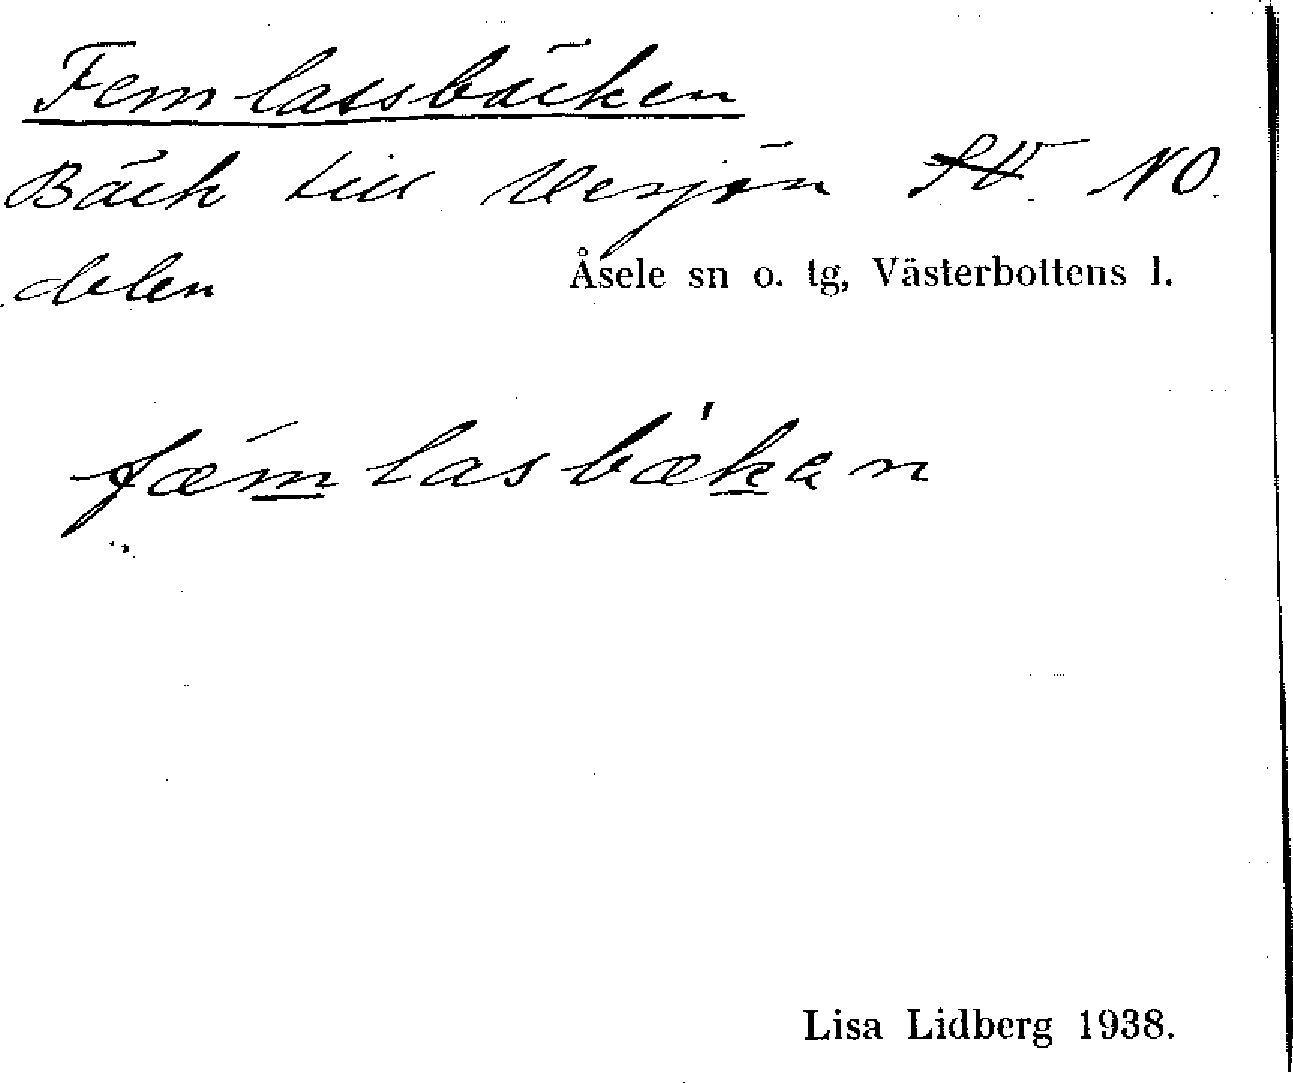 Femlassbäcken
Bäck till Versjön SV. NO.
delen
Åsele sn o. tg, Västerbottens l.
fæmlasbækan
Lisa Lidberg 1938.